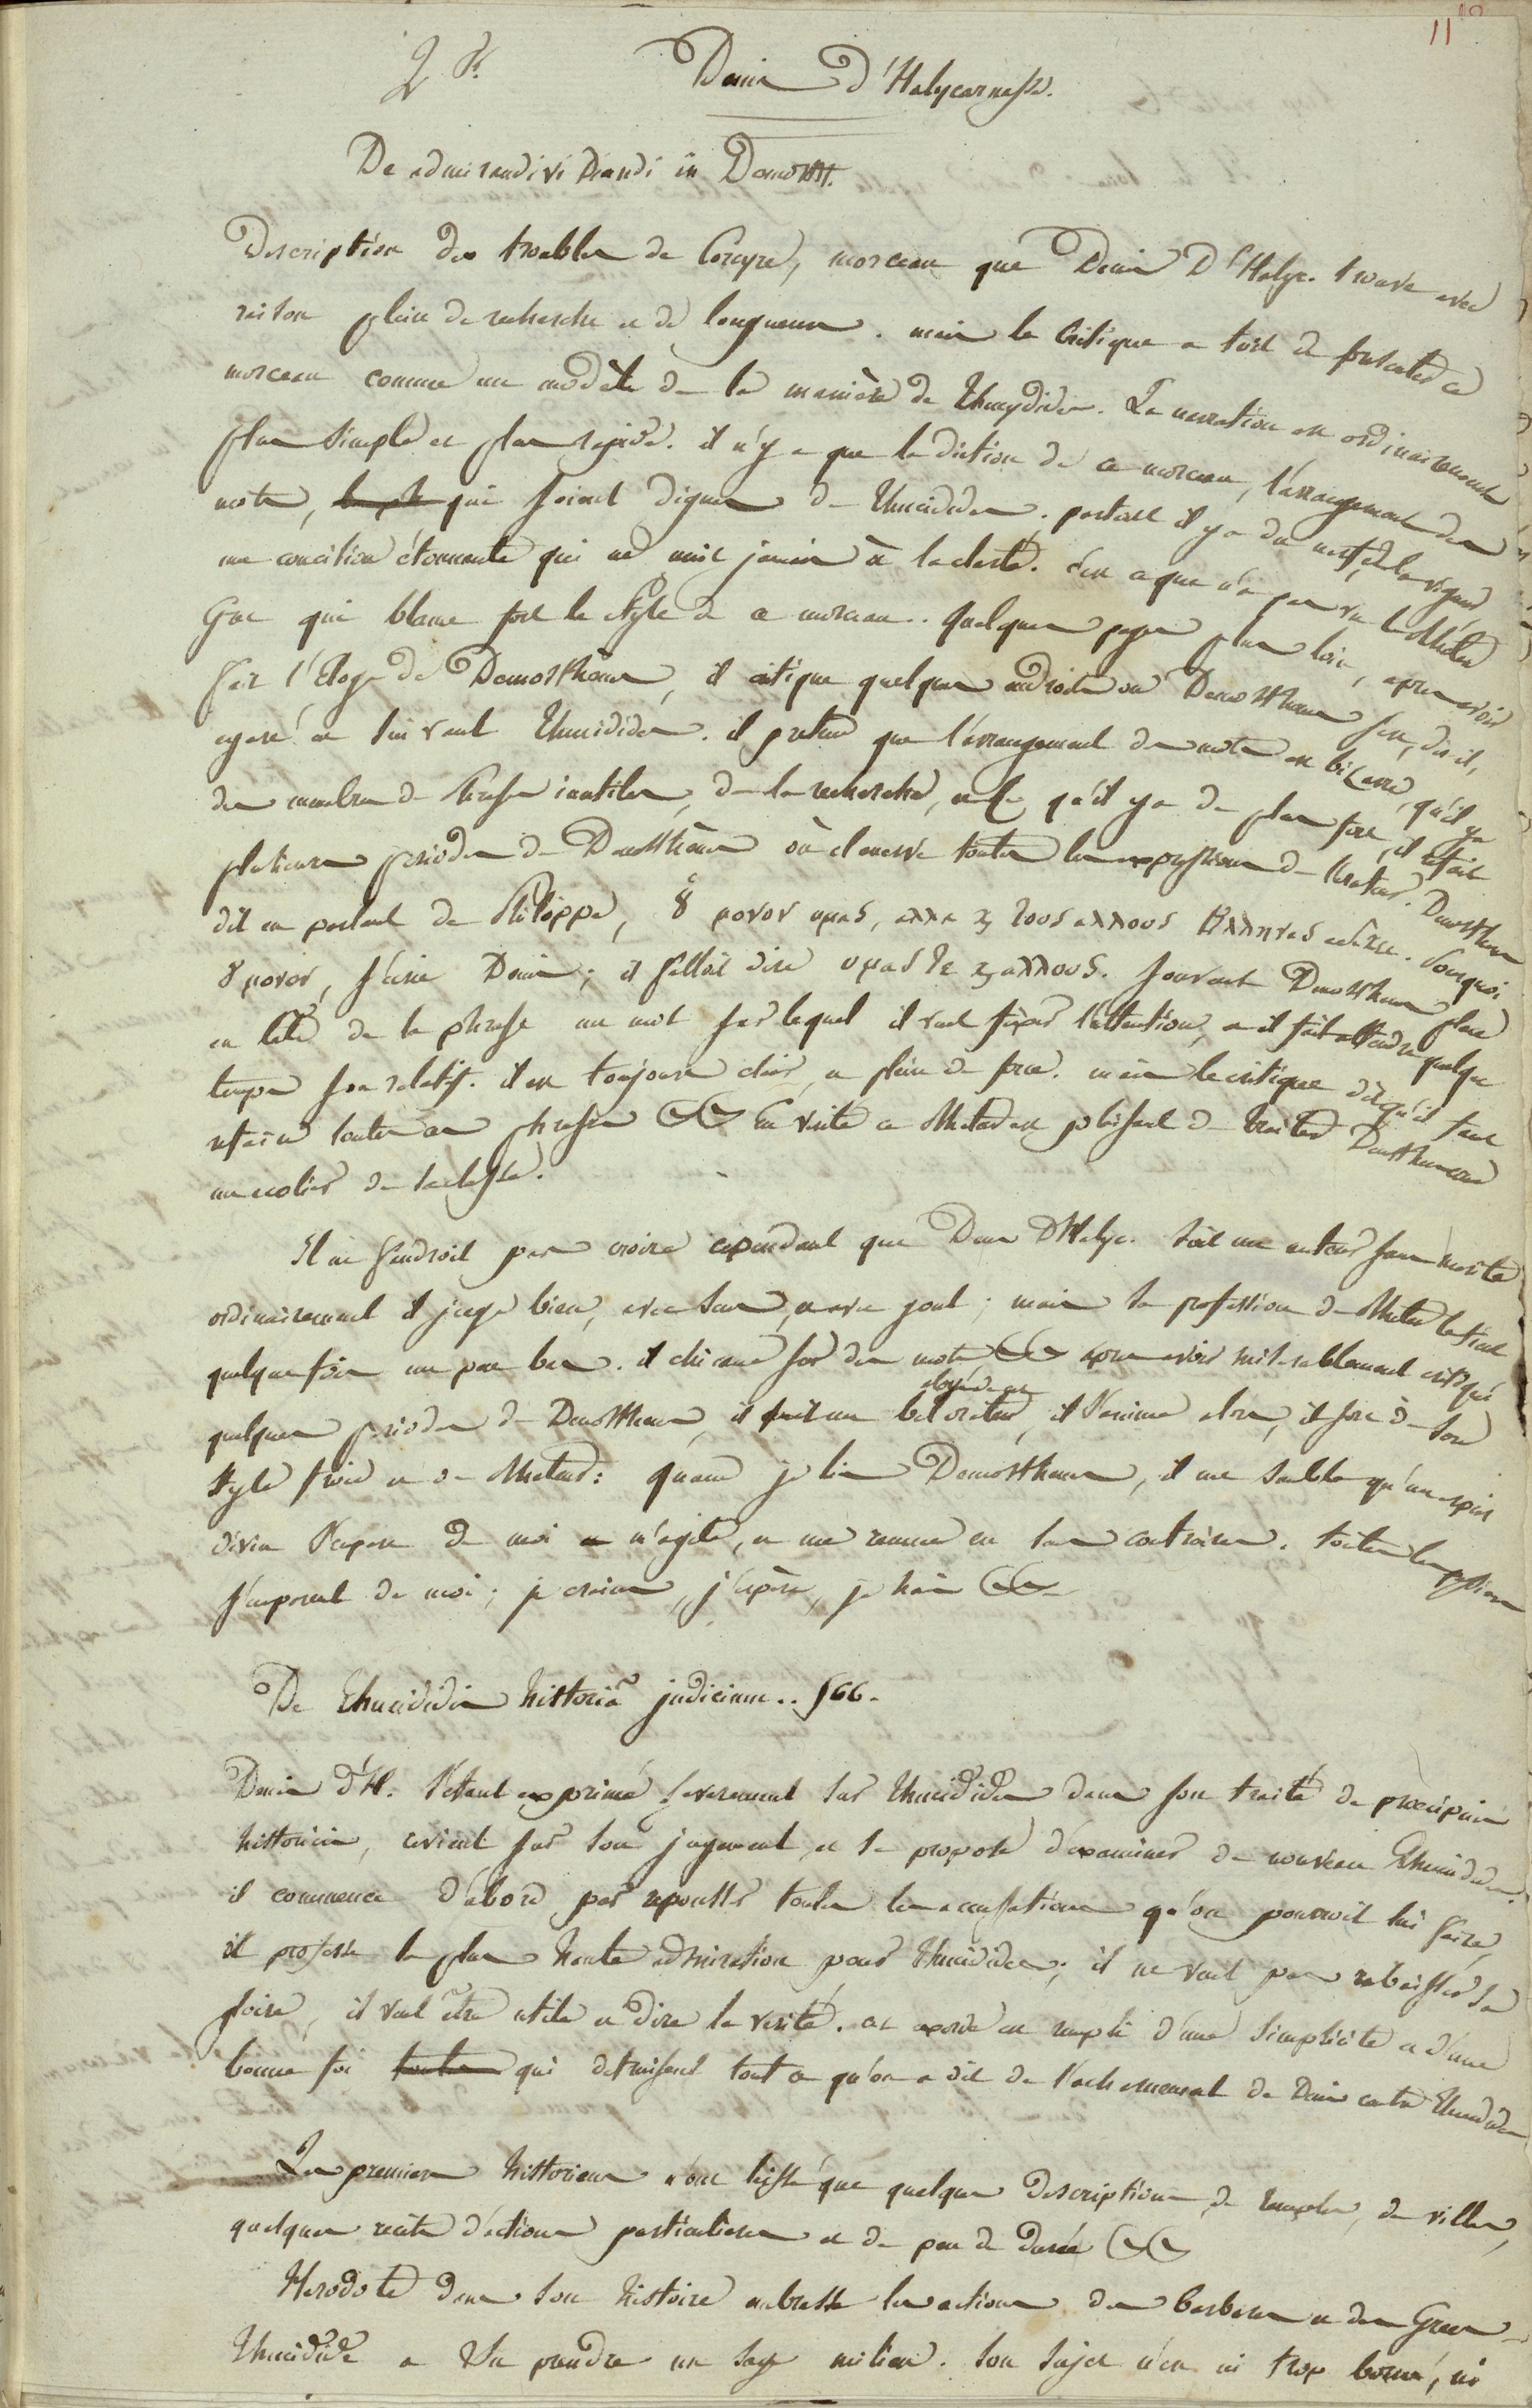 11
2 R.
Denis d'Halycarnasse.
De admirandi vi dicendi in Demosth.
Description des troubles de Corcyre, morceau que Denis d'Halyc. trouve avec
raison plein de recherche et de longueurs. mais le critique a tort de presenter ce
morceau comme un modèle de la manière de Thucydides. La narration est ordinairement
plus simple et plus rapide. il n'y a que la diction de ce morceau, l'arrangement des
mots, qui soient dignes de Thucidides. partout il y a du nerf, de la vigueur
une concision étonnante qui ne nuit jamais à la clarté. c'est ce que n'a pas vu le Rhéteur
Grec qui blame fort le style de ce morceau. Quelques pages plus loin, apres avoir
fait l'Eloge de Demosthène, il critique quelques endroits ou Demosthene s'est, dit-il,
egaré en suivant Thucidides. il pretend que l'arrangement des mots est bizarre, qu'il y a
des membres de phrase inutiles, de la recherche, et ce qu'il y a de plus fort, il refait
plusieurs periodes de Demosthène où il conserve toutes les expressions de l'orateur. Demosthene
dit en parlant de Philippe, ȣ μονον υμας, αλλα ϗ τους αλλους Ελληνας . Pourquoi
ȣ μονον, s'écrie Denis; il falloit dire υμας τε ϗ αλλους. souvent Demosthene place
en tête de la phrase un mot sur lequel il veut fixer l'attention, et il fait attendre quelque
temps son relatif. il est toujours clair, et plein de force. mais le critique dit qu'il faut
refaire toutes ces phrases &c En verité ce Rheteur est plaisant de traiter Demosthene comme
un ecolier de sa classe.
Il ne faudroit pas croire cependant que Denis d'Halyc. soit un auteur sans merite
ordinairement il juge bien, avec sens, et avec gout; mais sa profession de Rheteur le tient
quelquefois un peu bas. il chicane sur des mots &c apres avoir miserablement critiqué
quelques periodes de Demosthene, il fait un bel eloge de cet orateur, il s'anime alors, il sort de son
style froid et de Rheteur: quand je lis Demosthene, il me semble qu'un esprit
divin s'empare de moi m'agite, et me remue en sens contraires. toutes les passions
s'emparent de moi; je crains, j'espère, je hais &c
De Thucididis historiâ judicium.. 566.
Denis d'H. s'étant exprimé severement sur Thucidides dans son traité de præcipuis
historicis, revient sur son jugement, et se propose d'examiner de nouveau Thucidides.
il commence d'abord par repousser toutes les accusations qu'on pourroit lui faire,
il professe la plus haute admiration pour Thucidides; il ne veut pas rabaisser sa
gloire, il veut être utile et dire la verité. cet exorde est rempli d'une simplicité et d'une
bonne foi qui detruisent tout ce qu'on a dit de l'acharnement de Denis contre Thucidides
Les premiers historiens n'ont laissé que quelques descriptions, de temples, de villes,
quelques recits d'actions particulieres et de peu de durée &c
Herodote dans son histoire embrasse les actions des barbares et des Grecs
Thucidide a su prendre un sage milieu. son sujet n'est ni trop borné, ni